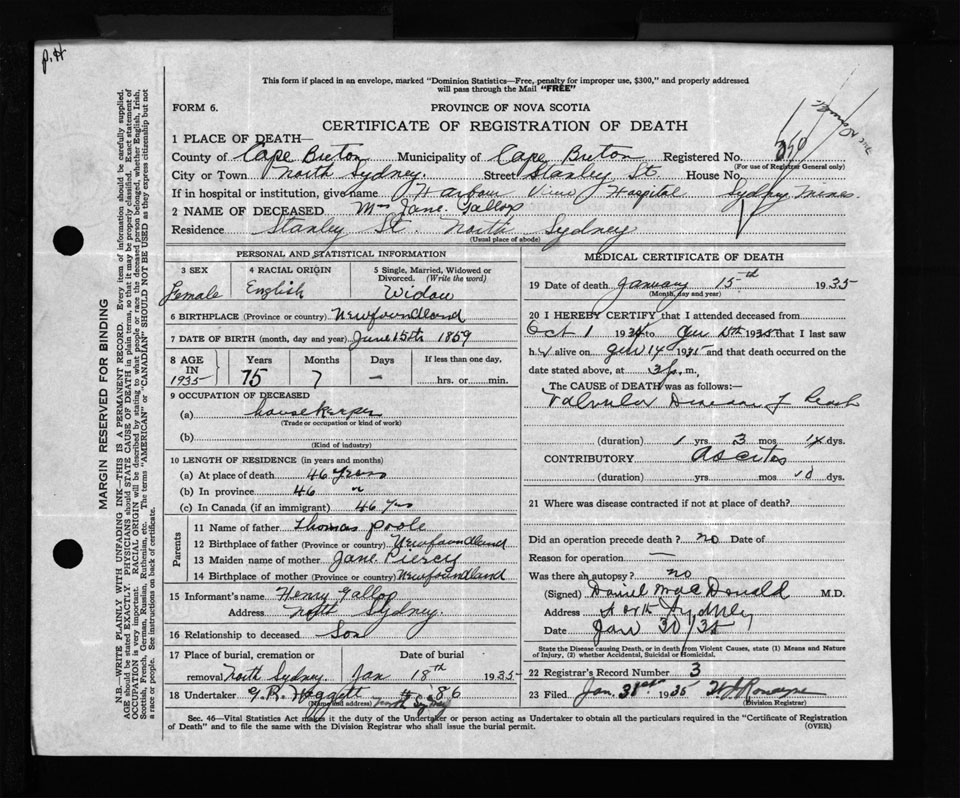 P.H
This form if placed in an envelope, marked "Dominion Statistics—Free, penalty for improper use, $300," and properly addressed
will pass through the Mail "FREE"
FORM 6.
PROVINCE OF NOVA SCOTIA
CERTIFICATE OF REGISTRATION OF DEATH
1 PLACE OF DEATH—
County of Cape Breton Municipality of Cape Breton Registered No.
(For use of Registrar General only)
City or Town North Sydney. Street Stanley St. House No.
If in hospital or institution, give name Harbour View Hospital Sydney Mines
2 NAME OF DECEASED Mrs Jane Gallop
Residence Stanley St. North Sydney
(Usual place of abode)
PERSONAL AND STATISTICAL INFORMATION
3 SEX
Female
4 RACIAL ORIGIN
English
5 Single, Married, Widowed or
Divorced. (Write the word)
Widow
6 BIRTHPLACE (Province or country) Newfoundland
7 DATE OF BIRTH (month, day and year) June 15th 1859
8 AGE IN 1935 Years Months Days If less than one day,
75 7 — hrs. or min.
9 OCCUPATION OF DECEASED
(a) housekeeper
(Trade or occupation or kind of work)
(b)
(Kind of industry)
10 LENGTH OF RESIDENCE (in years and months)
(a) At place of death 46 years
(b) In province 46 "
(c) In Canada (if an immigrant) 46 Yrs
Parents
11 Name of father Thomas Poole
12 Birthplace of father (Province or country) Newfoundland
13 Maiden name of mother Jane Piercy
14 Birthplace of mother (Province or country) Newfoundland
15 Informant's name Henry Gallop
Address North Sydney.
16 Relationship to deceased Son
17 Place of burial, cremation or Date of burial
removal North Sydney. Jan 18th 1935
18 Undertaker G.R. 86
(Name and address) North Sydney
MEDICAL CERTIFICATE OF DEATH
19 Date of death January 15th 1935
(Month, day and year)
20 I HEREBY CERTIFY that I attended deceased from
Oct 1 1934 to Jan 15th 1935 that I last saw
h alive on Jan 14 1935 and that death occurred on the
date stated above, at 3 p. m.
The CAUSE of DEATH was as follows:—
Valvular Disease of Heart
(duration) 1 yrs 3 mos dys.
CONTRIBUTORY Ascites
(duration) yrs mos 10 dys.
21 Where was disease contracted if not at place of death?
Did an operation precede death? no Date of
Reason for operation —
Was there an autopsy? no
(Signed) Daniel MacDonald M.D.
Address North Sydney
Date Jan 30/35
State the Disease causing Death, or in death from Violent Causes, state (1) Means and Nature
of Injury, (2) whether Accidental, Suicidal or Homicidal.
22 Registrar's Record Number 3
23 Filed Jan. 31st 1935
(Division Registrar)
Sec. 46—Vital Statistics Act makes it the duty of the Undertaker or person acting as Undertaker to obtain all the particulars required in the "Certificate of Registration
of Death" and to file the same with the Division Registrar who shall issue the burial permit. (OVER)
MARGIN RESERVED FOR BINDING
N.B.—WRITE PLAINLY WITH UNFADING INK—THIS IS A PERMANENT RECORD. Every item of information should be carefully supplied.
AGE should be stated EXACTLY. PHYSICIANS should STATE CAUSE OF DEATH in plain terms, so that it may be properly classified. Exact statement of
OCCUPATION is very important. RACIAL ORIGIN will be described by stating to what people or race the deceased person belonged, whether English, Irish,
Scottish, French, German, Russian, Ruthenian, etc. The terms "AMERICAN" or "CANADIAN" SHOULD NOT BE USED as they express citizenship but not
a race or people. See instructions on back of certificate.